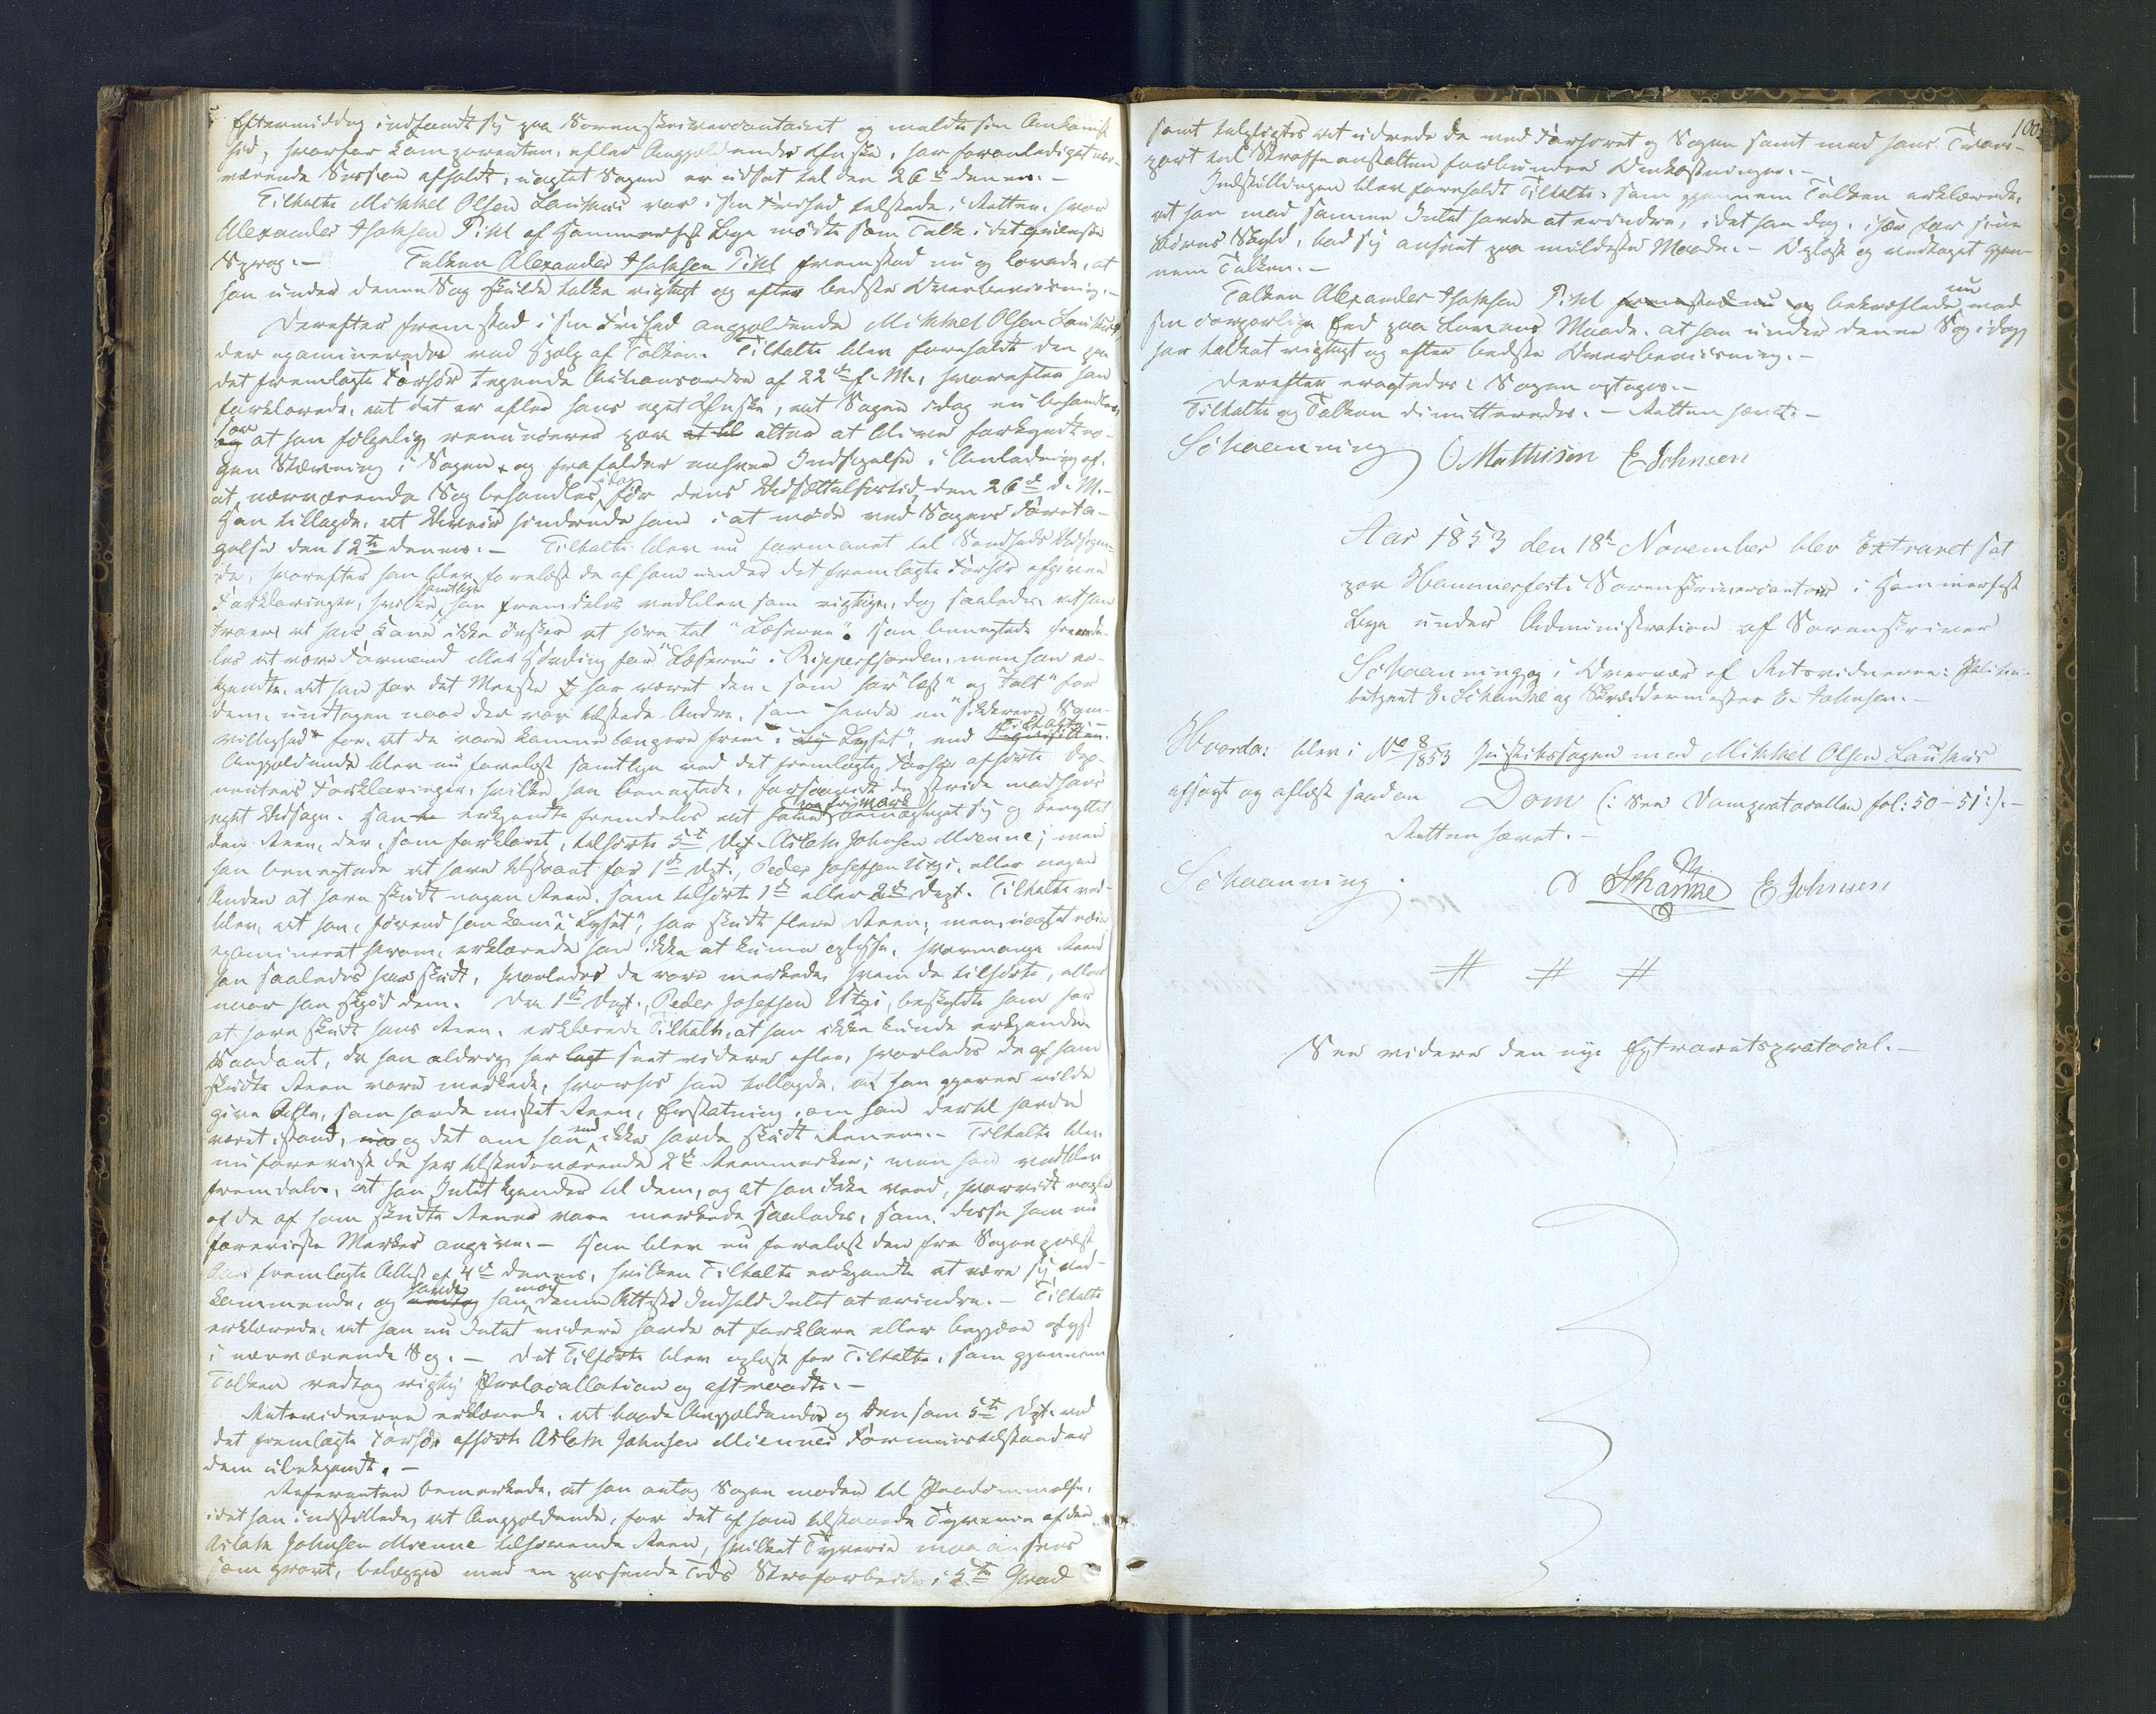 Eftermiddag indfandt sig paa Sorenskrivercontoiret og meldte sin Ankomst
hid, hvorfor Comparenten, efter Angjeldendes Ønske, har foranlediget nær-
værende Session afholdt, uagtet Sagen er udsat til den 26de dennes. -
Tiltalte Mikkel Olsen Lauhus var i sin Frihed tilstede i Retten, hvor
Alexander Isaksen Pihl af Hammerfest Bye mødte som Tolk i det qvænske
Sprog. - Tolken Alexander Isaksen Pihl fremstod nu og lovede, at
han under denne Sag skulde tolke rigtigt og efter bedste Overbeviisning. -
Derefter fremstod i sin Frihed angjeldende Mikkel Olsen Lauhus,
der examineredes ved Hjelp af Tolken. Tiltalte blev foreholdt den paa
det fremlagte Forhør tegnede Actionsordre af 22de f. M., hvorefter han
forklarede, at det er efter hans eget Ønske, at Sagen idag nu behandles,
og at han følgelig renuncerer paa at til atter at blive forkyndt no-
gen Stævning i Sagen, og frafalder enhver Indsigelse i Anledning af,
at nærværende Sag behandles idag før dens Udsættelsestid den 26de d. M. -
Han tillagde, at Uveir hindrede ham i at møde ved Sagens Foreta-
gelse den 12te dennes. - Tiltalte blev nu formanet til Sandheds Udsigen-
de, hvorefter han blev forelæst de af ham under det fremlagte Forhør afgivne
Forklaringer, hvilke samtlige han fremdeles vedblev som rigtige, dog saaledes at han
troer, at hans Kone ikke ønsker at høre til "Læserne". Han benegtede fremde-
les at være Formand eller Høvding for "Læserne" i Ripperfjorden, men han er-
kjendte, at han for det Meeste har været den, som har "læst" og "talt" for
dem, undtagen naar der var tilstede Andre, som havde en "sikkrere Sam-
vittighed" for, at de vare komne længere frem i Lyset", end Tiltalte. -
Angjeldende blev nu forelæst samtlige ved det fremlagte Forhør afhørte Depo-
nenters Forklaringer, hvilke han benegtede, forsaavidt de stride mod hans
egne Udsagn. Han erkjendte fremdeles at have paa fri Mark bemægtiget sig og benyttet
den Reen, der, som forklaret, tilhørte 5te Dept. Aslak Johnsen Mienne; men
han benegtede at have tilstaaet for 1ste Dpt., Peder Josefsen Utzi, eller nogen
Anden at have skudt nogen Reen, som tilhørte 1ste eller 2den Dept. Tiltalte ved-
blev, at han, førend han kom "i Lyset", har skudt flere Reen; men, uagtet nøie
examineret herom, erklærede han ikke at kunne oplyse, hvormange Reen
han saaledes har skudt, hvorledes de vare merkede, hvem de tilhørte, eller
naar han skjød dem. Da 1ste Dept., Peder Josefsen Utzi, beskyldte ham for
at have skudt hans Reen, erklærede Tiltalte, at han ikke kunde erkjende
Saadant, da han aldrig har lagt seet videre efter, hvorledes de af ham
skudte Reen vare merkede, hvorhos han tillagde, at han gjerne vilde
give Alle, som havde mistet Reen, Erstatning, om han dertil havde
været istand, og det om han end ikke havde skudt Renene. - Tiltalte blev
nu foreviist de her tilstedeværende 2de Reenmerker; men han vedblev
fremdeles, at han Intet kjender til dem, og at han ikke veed, hvorvidt nogle
af de af ham skudte Rener vare merkede saaledes, som disse ham nu
foreviiste Merker angive. - Han blev nu forelæst den fra Sognepræst
 fremlagte Attest af 4de dennes, hvilken Tiltalte erkjendte at være sig ved-
kommende, og havde han mod denne Attestes Indhold Intet at erindre. - Tiltalte
erklærede, at han nu Intet videre havde at forklare eller begjære oplyst
i nærværende Sag. - Det Tilførte blev oplæst for Tiltalte, som gjennem
Tolken vedtog rigtig Protocollation og aftraadte. -
Retsvidnerne erklærede, at baade Angjeldendes og den som 5te Dpt. ved
det fremlagte Forhør afhørte Aslak Johnsen Miennes Formuestilstand er
dem ubekjendt. -
Referenten bemærkede, at han antog Sagen moden til Paadømmelse,
idet han indstillede, at Angjeldende, for det af ham tilstaaede Tyverie af den
Aslak Johnsen Mienne tilhørende Reen, hvilket Tyverie maa ansees
som grovt, belægges med en passende Tids Strafarbeide i 5te Grad
100
samt tilpligtes at udrede de med Forhøret og Sagen samt med hans Trans-
port til Straffeanstalten forbundne Omkostninger. -
Indstillingen blev foreholdt Tiltalte, som gjennem Tolken erklærede,
at han mod samme Intet havde at erindre, idet han dog, især for sine
Børns Skyld, bad sig anseet paa mildeste Maade. - Oplæst og vedtaget gjen-
nem Tolken. -
Tolken Alexander Isaksen Pihl fremstod nu og bekræftede nu med
sin corporlige Eed paa Lovens Maade, at han under denne Sag idag
har tolket rigtigt og efter bedste Overbeviisning. -
Derefter eragtedes: Sagen optages. -
Tiltalte og Tolken dimitteredes. - Retten hævet. -
Schaanning O Mathisen E Johnsen
Aar 1853 den 18de November blev Extraret sat
paa Hammerfests Sorenskrivercontoir i Hammerfest
Bye under Administration af Sorenskriver
Schaanning og i Overvær af Retsvidnerne: Politi-
betjent N. Schanke og Skræddermester E. Johnsen. -
Hvorda: blev i No 8/1853 Justitssagen mod Mikkel Olsen Lauhus
afsagt og aflæst saadan Dom (: See Domprotocollen fol: 50 - 51:). -
Retten hævet. -
Schaanning. N Schanke E Johnsen
# # #
See videre den nye Extraretsprotocol. -